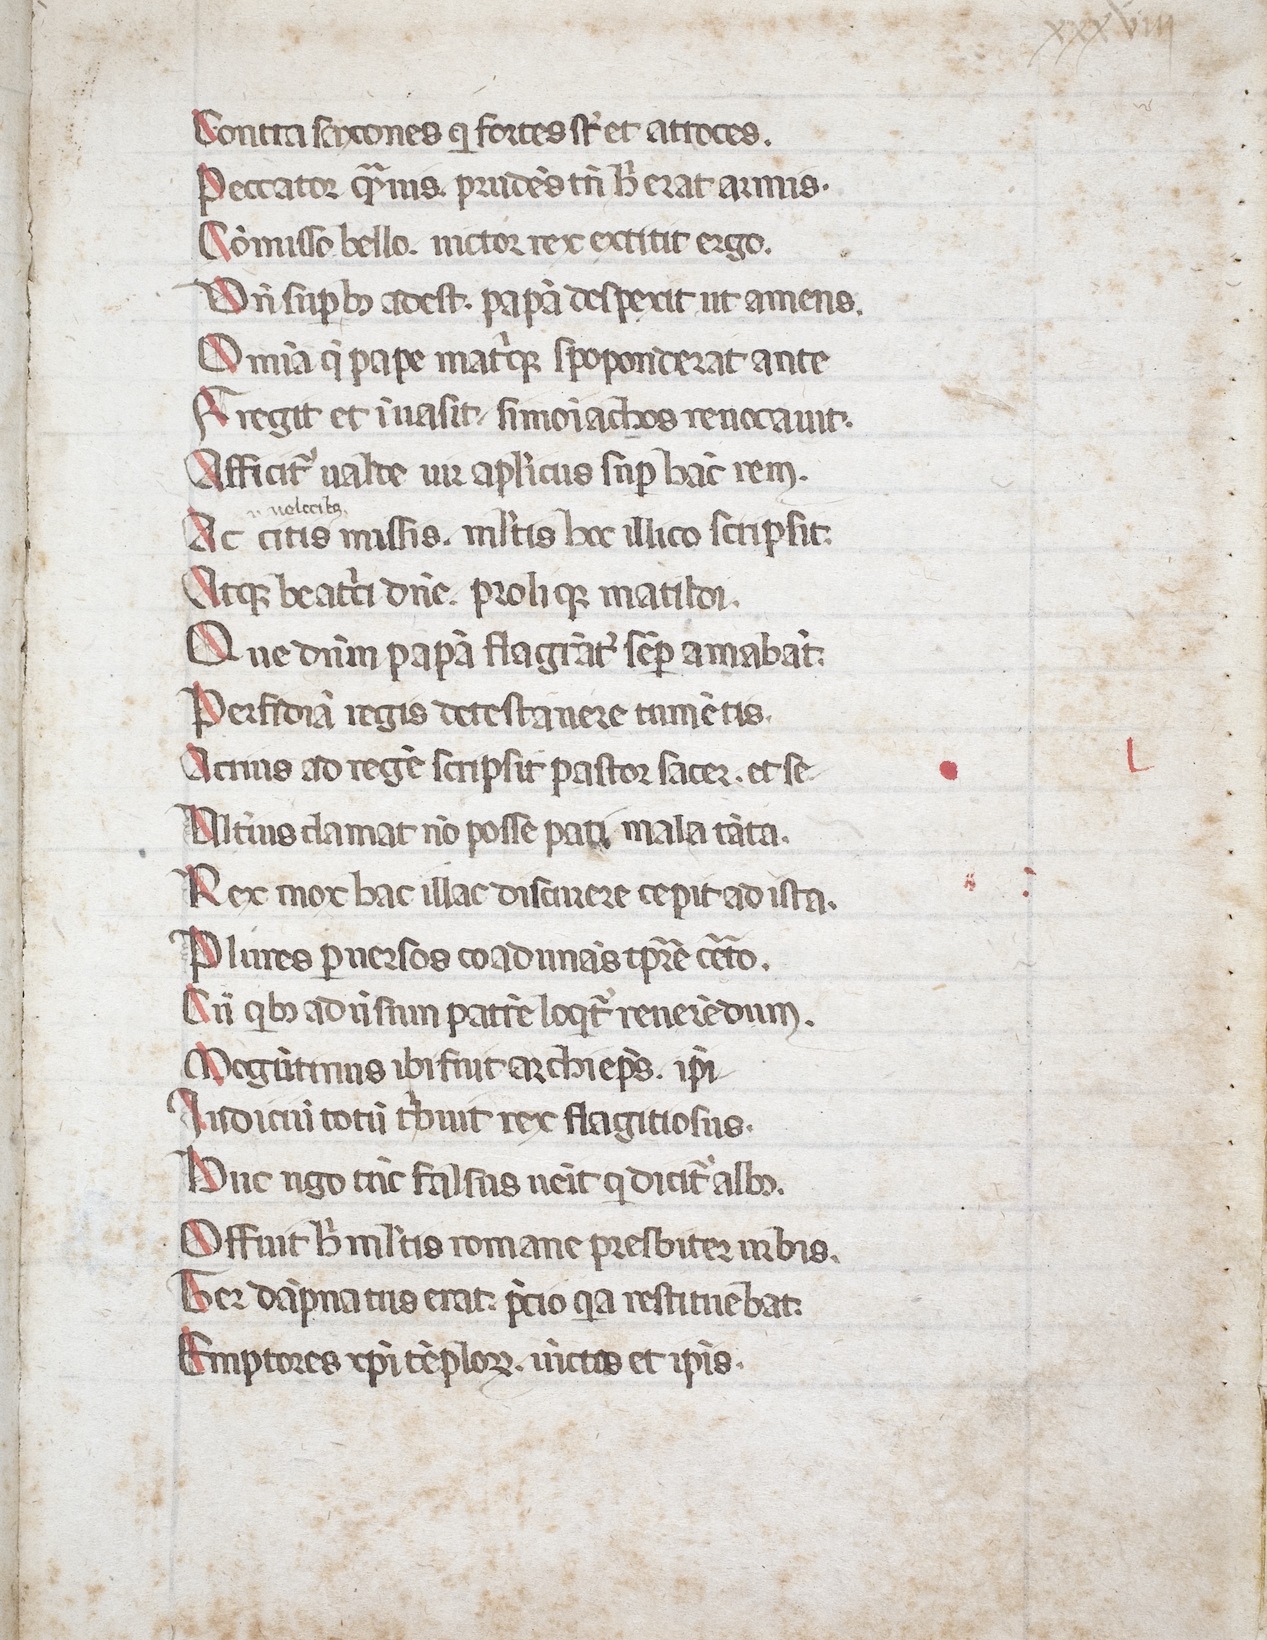 xxxviiii
Contra saxones q̇ fortes st̾ et atroces.
Peccator qͣuis. prudēs tn̄ h̾ erat armis.
Cōmisso bello. uictor rex extitit ergo.
Vn̄ suꝑbꝰ adest. papā despexit ut amens.
Omīa q̇ pape mat̾q; spoponderat ante
Fregit et īuasit. simoīachos reuocauit.
Afficit̾ ualde uir apl̾icus suꝑ hāc rem.
uelocibꝫ
Ac citis missis. ml̾tis hoc illico scripsit.
Atq; beatͥci dn̄e. proli q; matildi.
Que dnm̄ papā flagrāt̾ sēꝑ amabāt.
Perfidiā regis detestauere tumētis.
Actius ad regē scripsit pastor sacer. et se
Vlt̾ius clamat nō posse pati mala tāta.
Rex mox hac illac discurere cepit ad ista.
Plures ꝑuersos coadunās tp̄re cͤto.
Cū qͥbꝰ aduersum patrē loqt̾ reuerēdum.
Mogūtinus ibi fuit archieps̄. ip̄i
Iudiciū totū t̾buit rex flagitiosus.
Huc ugo tūc falsus ueīt q̇ dicit̾ albꝰ.
Offuit h̾ ml̾tis romane presbiter urbis.
Ter dāpnatus erat. p̄cio qa restituebat.
Emptores xp̄i tēploꝝ. uictos et ip̄is.
L